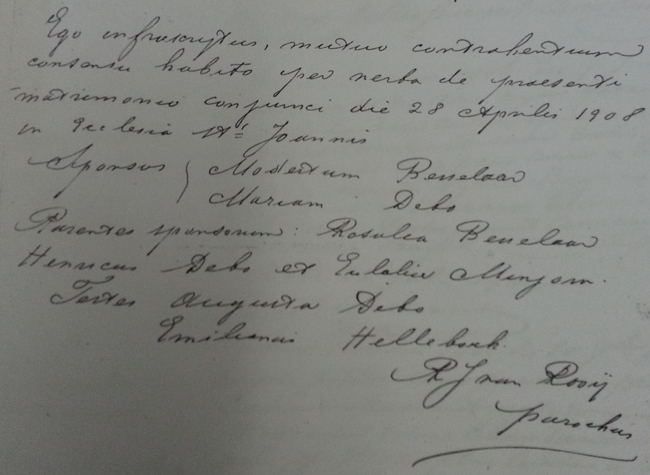 Ego infrascriptus, mutuo contrahentium
consensu habito per verba de praesenti
matrimonio conjunxi die 28 Aprilis 1908
in Ecclesia Sti Joannis
Sponsos { Modestum Beselaar
Mariam Debo
Parentes sponsorum: Rosalia Beselaar
Henricus Debo et Eulalia
Testes Augusta Debo
Emilianus Hellebock.
van Rooij
parochus